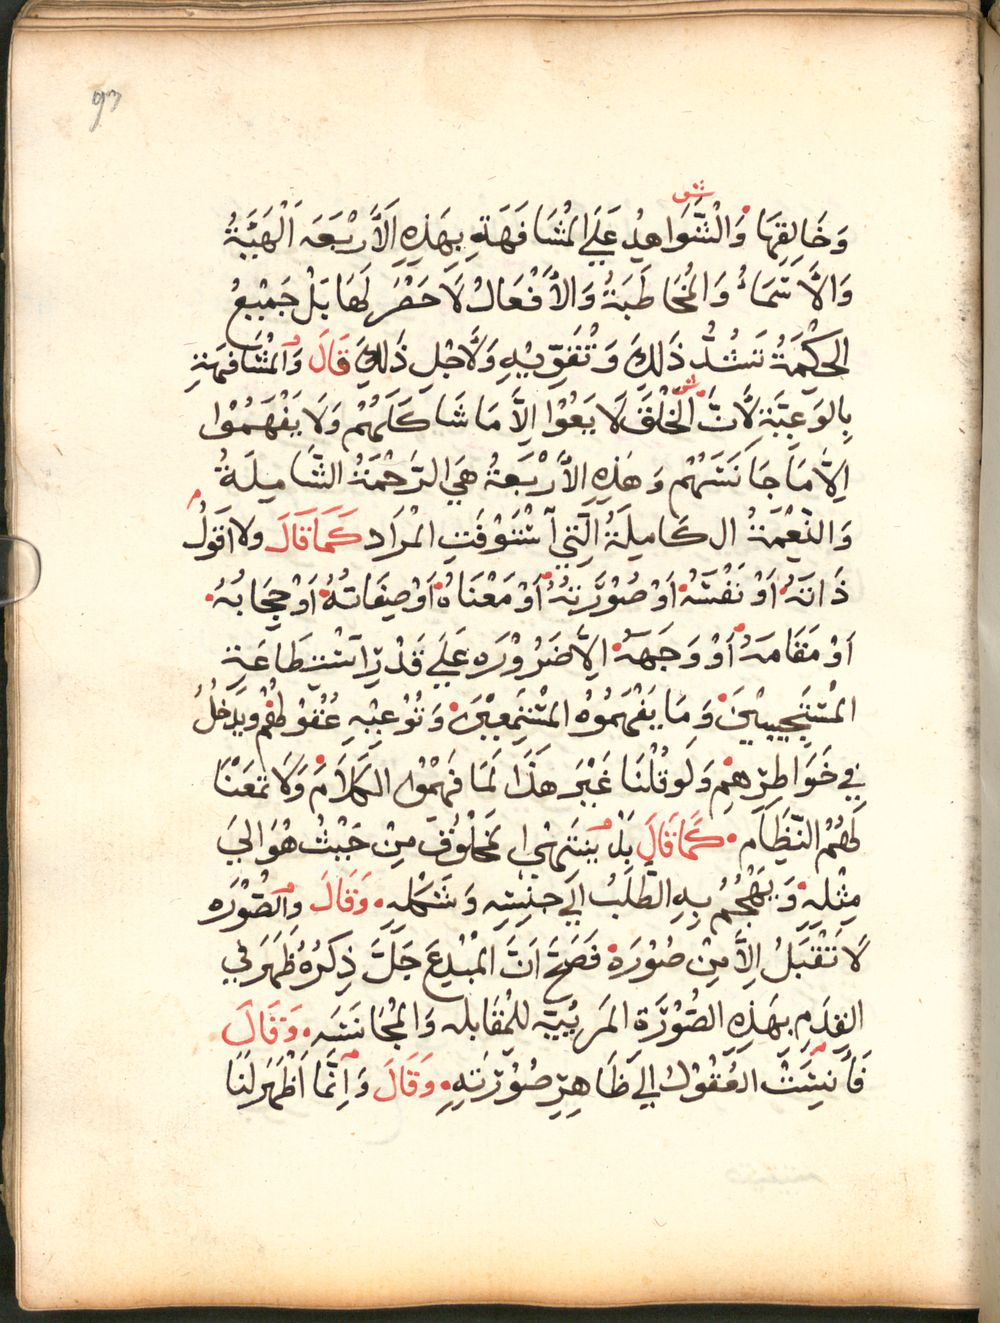 93
ش
وَخَالِقِهَا وَالْشَّوَاهِدُ عَلَي المُشَافَهَةِ بِهَذِهِ الاَّرْبَعَه اَلْهَيَّةُ
وَالاَّسْمَاءُ وَالمُخَاطَبَةُ وَالاَّفْعَالْ لاَ حَصْرَ لَهَا بَلْ جَمْيِعُ
الحَكْمَةُ تَشُدُّ ذَلِكَ وَتُقَوِّيْهِ وَلاَجْلِ ذَلِكَ قَالَ وَالمُشَافَهَةِ
بِالوَعِيَّةِ لاَّنَّ الخَلْقَ لاَ يَعُوْا اِلاَّ مَا شَاكَلَهُمْ وَلاَ يَفْهَمُوْا
اِلاَّ مَا جَانَسَهُمْ وَهَذِهِ الاَّرْبَعَةُ هِيَ الرَّحْمَةُ الشَّامِلَةُ
وَالنِّعْمَةُ ال كَامِلَةُ الَّتِي آسْتَوْفَتِ المْرَاد كَمَا قَالَ ولا اَقوْلُ
ذَاتَهُ اَوْ نَفْسَهُ اَوْ صُوْرَتِهُ اَوْ مَعْنَاهُ اَوْ صِفَاتهُ اَوْ حِجَابُهُ
اَوْ مَقَامَهُ اَوْ وَجَهَهُ اِلاَّ ضَرُوْرَه عَلَي قَدْرِ آسْتِطَاعَةِ
المْسْتَجِيبِيْنَ وَمَا يَفْهَمُوْهُ المْسْتَمِعِيْنَ وَتُوْعِيْهِ عُقُوْلُهُمْ ويدخلُ
فِي خَوَاطِرِهِمْ وَلَو قُلْنَا غَيْرَ هَذَا لَمَا فَهِمُوْا الكَلاَمَ وَلاَ تمَعْنَا
لَهُمْ النِّظَاَم كَمَا قَالَ بَلْ يَنْتَهِيْ المَخْلُوْقُ مِنْ حَيْثُ هُوَ اِلي
مِثْلِهِ وَيَهْجُمُ بِهِ الطَّلَبُ اِلَي جِنْسِهِ وَشَكْلِهِ وَقَالَ وَالصُّوْرَه
لاَ تَقْبَلُ اِلاَّ مِنْ صُوْرَهٍ فَصَحَّ اَنَّ المْبْدِعَ جَلَّ ذِكرُهُ ظَهَرَ فِي
القِدَمِ بِهَذِهِ الصُّوْرَة المَرِييَّة للمُقَابله وَالمُجَانَسَه وَقَالَ
فَأَنِسَتْ العُقُوْلُ اِلي ظَاهِرِ صُوْرَتهِ وَقَالَ وَاِنَّمَا اَظْهَرَ لَنَا